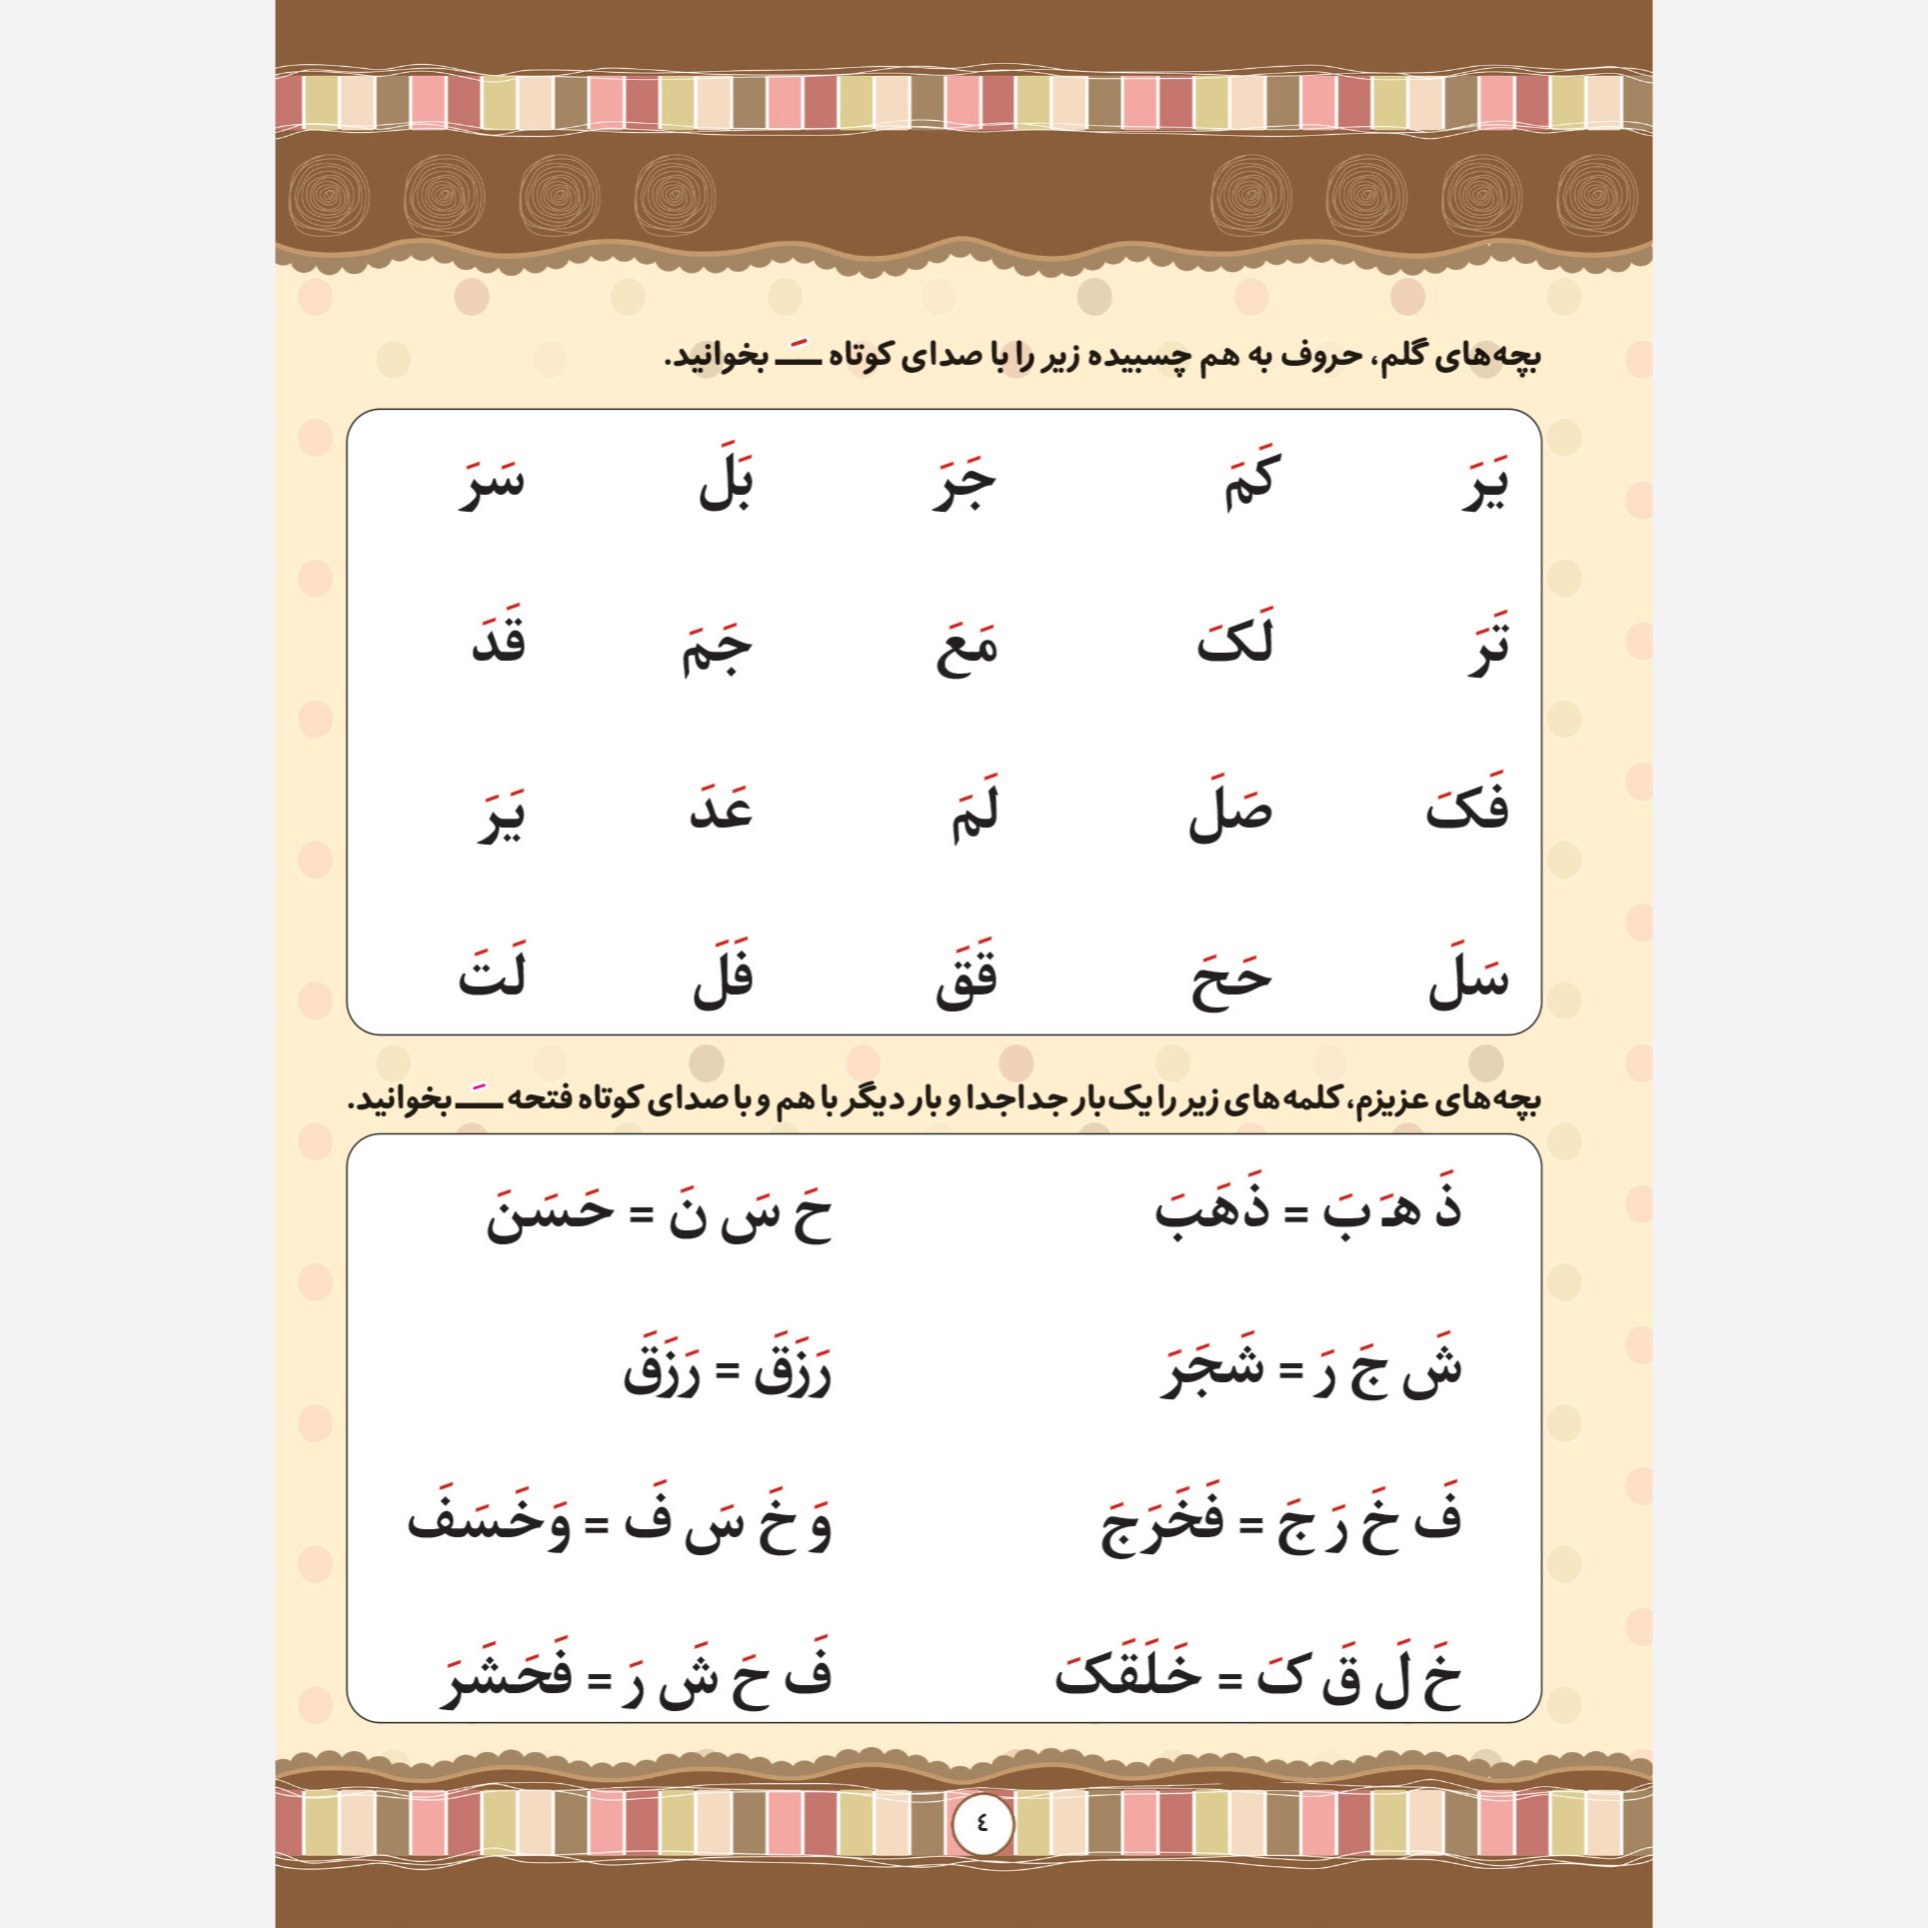 بچه‌های گلم، حروف به هم چسبیده زیر را با صدای کوتاه ـَـ بخوانید.
یَرَ کَمَ جَرَ بَلَ سَرَ
تَرَ لَکَ مَعَ جَمَ قَدَ
فَکَ صَلَ لَمَ عَدَ یَرَ
سَلَ حَحَ قَقَ فَلَ لَتَ
بچه‌های عزیزم، کلمه‌های زیر را یک‌بار جدا جدا و بار دیگر با هم و با صدای کوتاه فتحه ـَـ بخوانید.
ذَ هَـ بَ = ذَهَبَ حَ سَ نَ = حَسَنَ
شَ جَ رَ = شَجَرَ رَزَقَ = رَزَقَ
فَ خَ رَ جَ = فَخَرَجَ وَ خَ سَ فَ = وَخَسَفَ
خَ لَ قَ کَ = خَلَقَکَ فَ حَ شَ رَ = فَحَشَرَ
٤